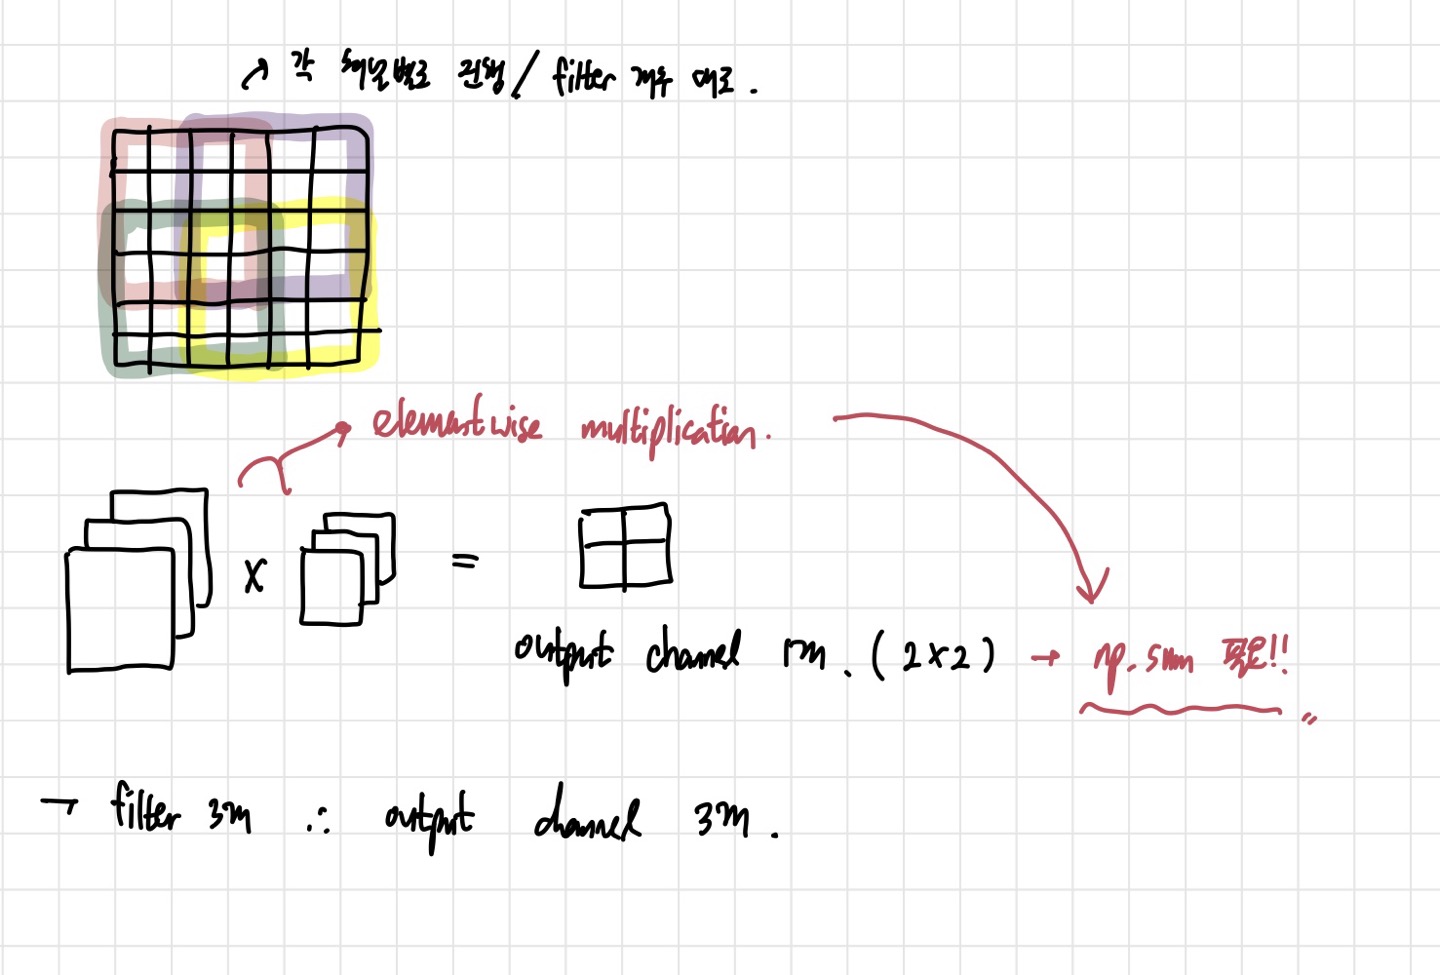 ↗ 각 채널별로 진행 / filter 개수 대로.
elementwise multiplication.
x =
output channel 1개. (2x2) → np.sum 필요!!
→ filter 3개 ∴ output channel 3개.